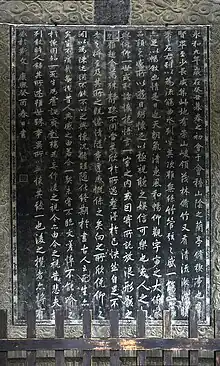 永和九年歲在癸丑暮春之初會于會稽山陰之蘭亭脩禊事
也羣賢畢至少長咸集此地有崇山峻領茂林脩竹又有清流激湍
暎帶左右引以為流觴曲水列坐其次雖無絲竹管弦之盛一觴一詠
亦足以暢敘幽情是日也天朗氣清惠風和暢仰觀宇宙之大俯察
品類之盛所以遊目騁懷足以極視聽之娛信可樂也夫人之
相與俯仰一世或取諸懷抱悟言一室之內或因寄所託放浪形骸之
外雖趣舍萬殊靜躁不同當其欣於所遇暫得於己快然自足不
知老之將至及其所之既惓情隨事遷感慨係之矣向之所欣俛仰之
間以為陳迹猶不能不以之興懷況脩短隨化終期於盡古人云死生亦
大矣豈不痛哉每攬昔人興感之由若合一契未嘗不臨文嗟悼不能喻
之於懷固知一死生為虛誕齊彭殤為妄作後之視今亦由今之視昔悲夫故
列敘時人錄其所述雖世殊事異所以興懷其致一也後之攬者亦將有
感於斯文 康熙 書